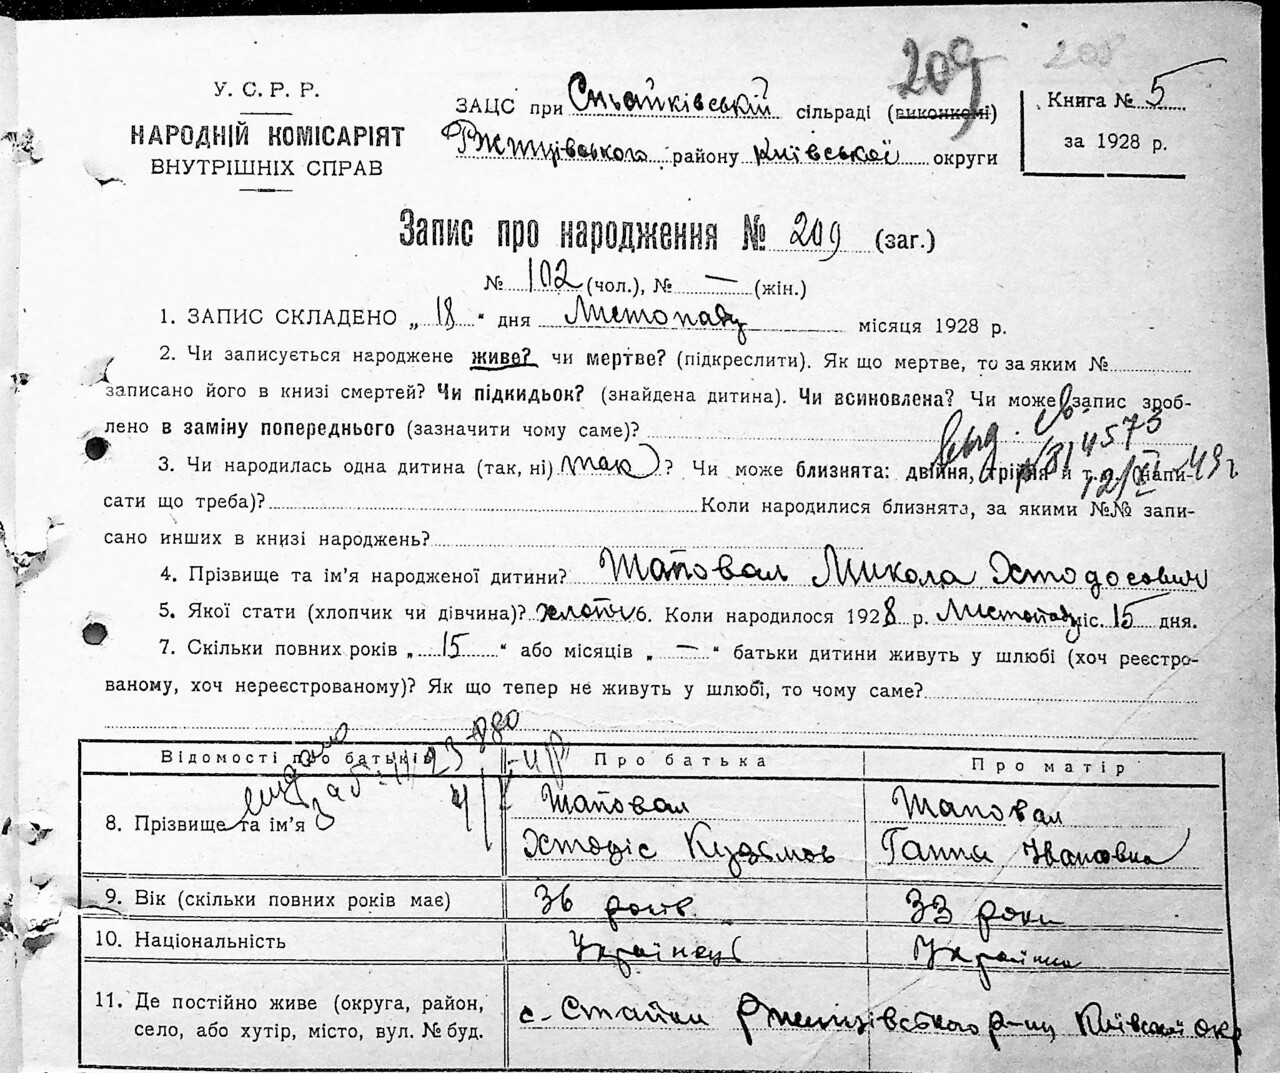 209
208
У. С. Р. Р.
НАРОДНІЙ КОМІСАРІЯТ
ВНУТРІШНІХ СПРАВ
ЗАЦС при Стайківській сільраді (виконкомі)
Ржищівського району Київської округи
Книга № 5
за 1928 р.
Запис про народження № 209 (заг.)
№ 102 (чол.), № — (жін.)
1. ЗАПИС СКЛАДЕНО „ 18 “ дня Листопаду місяця 1928 р.
2. Чи записується народжене живе? чи мертве? (підкреслити). Як що мертве, то за яким №
записано його в книзі смертей? Чи підкидьок? (знайдена дитина). Чи всиновлена? Чи може запис зроб-
лено в заміну попереднього (зазначити чому саме)?
3. Чи народилась одна дитина (так, ні) так? Чи може близнята: двійня, трійня й т. (напи-
сати що треба)? Коли народилися близнята, за якими №№ запи-
сано инших в книзі народжень?
4. Прізвище та ім’я народженої дитини? Шаповал Микола Хтодосович
5. Якої стати (хлопчик чи дівчина)? хлопч 6. Коли народилося 1928 р. Листопаду міс. 15 дня.
7. Скільки повних років „ 15 “ або місяців „ — “ батьки дитини живуть у шлюбі (хоч реєстро-
ваному, хоч нереєстрованому)? Як що тепер не живуть у шлюбі, то чому саме?
Відомості про батьків Про батька Про матір
8. Прізвище та ім’я Шаповал Шаповал
Хтодіс Кузьмов Ганна Івановна
9. Вік (скільки повних років має) 36 років 33 роки
10. Національність Українець Українка
11. Де постійно живе (округа, район,
село, або хутір, місто, вул. № буд. с. Стайки Ржищівського р-ну Київської окр